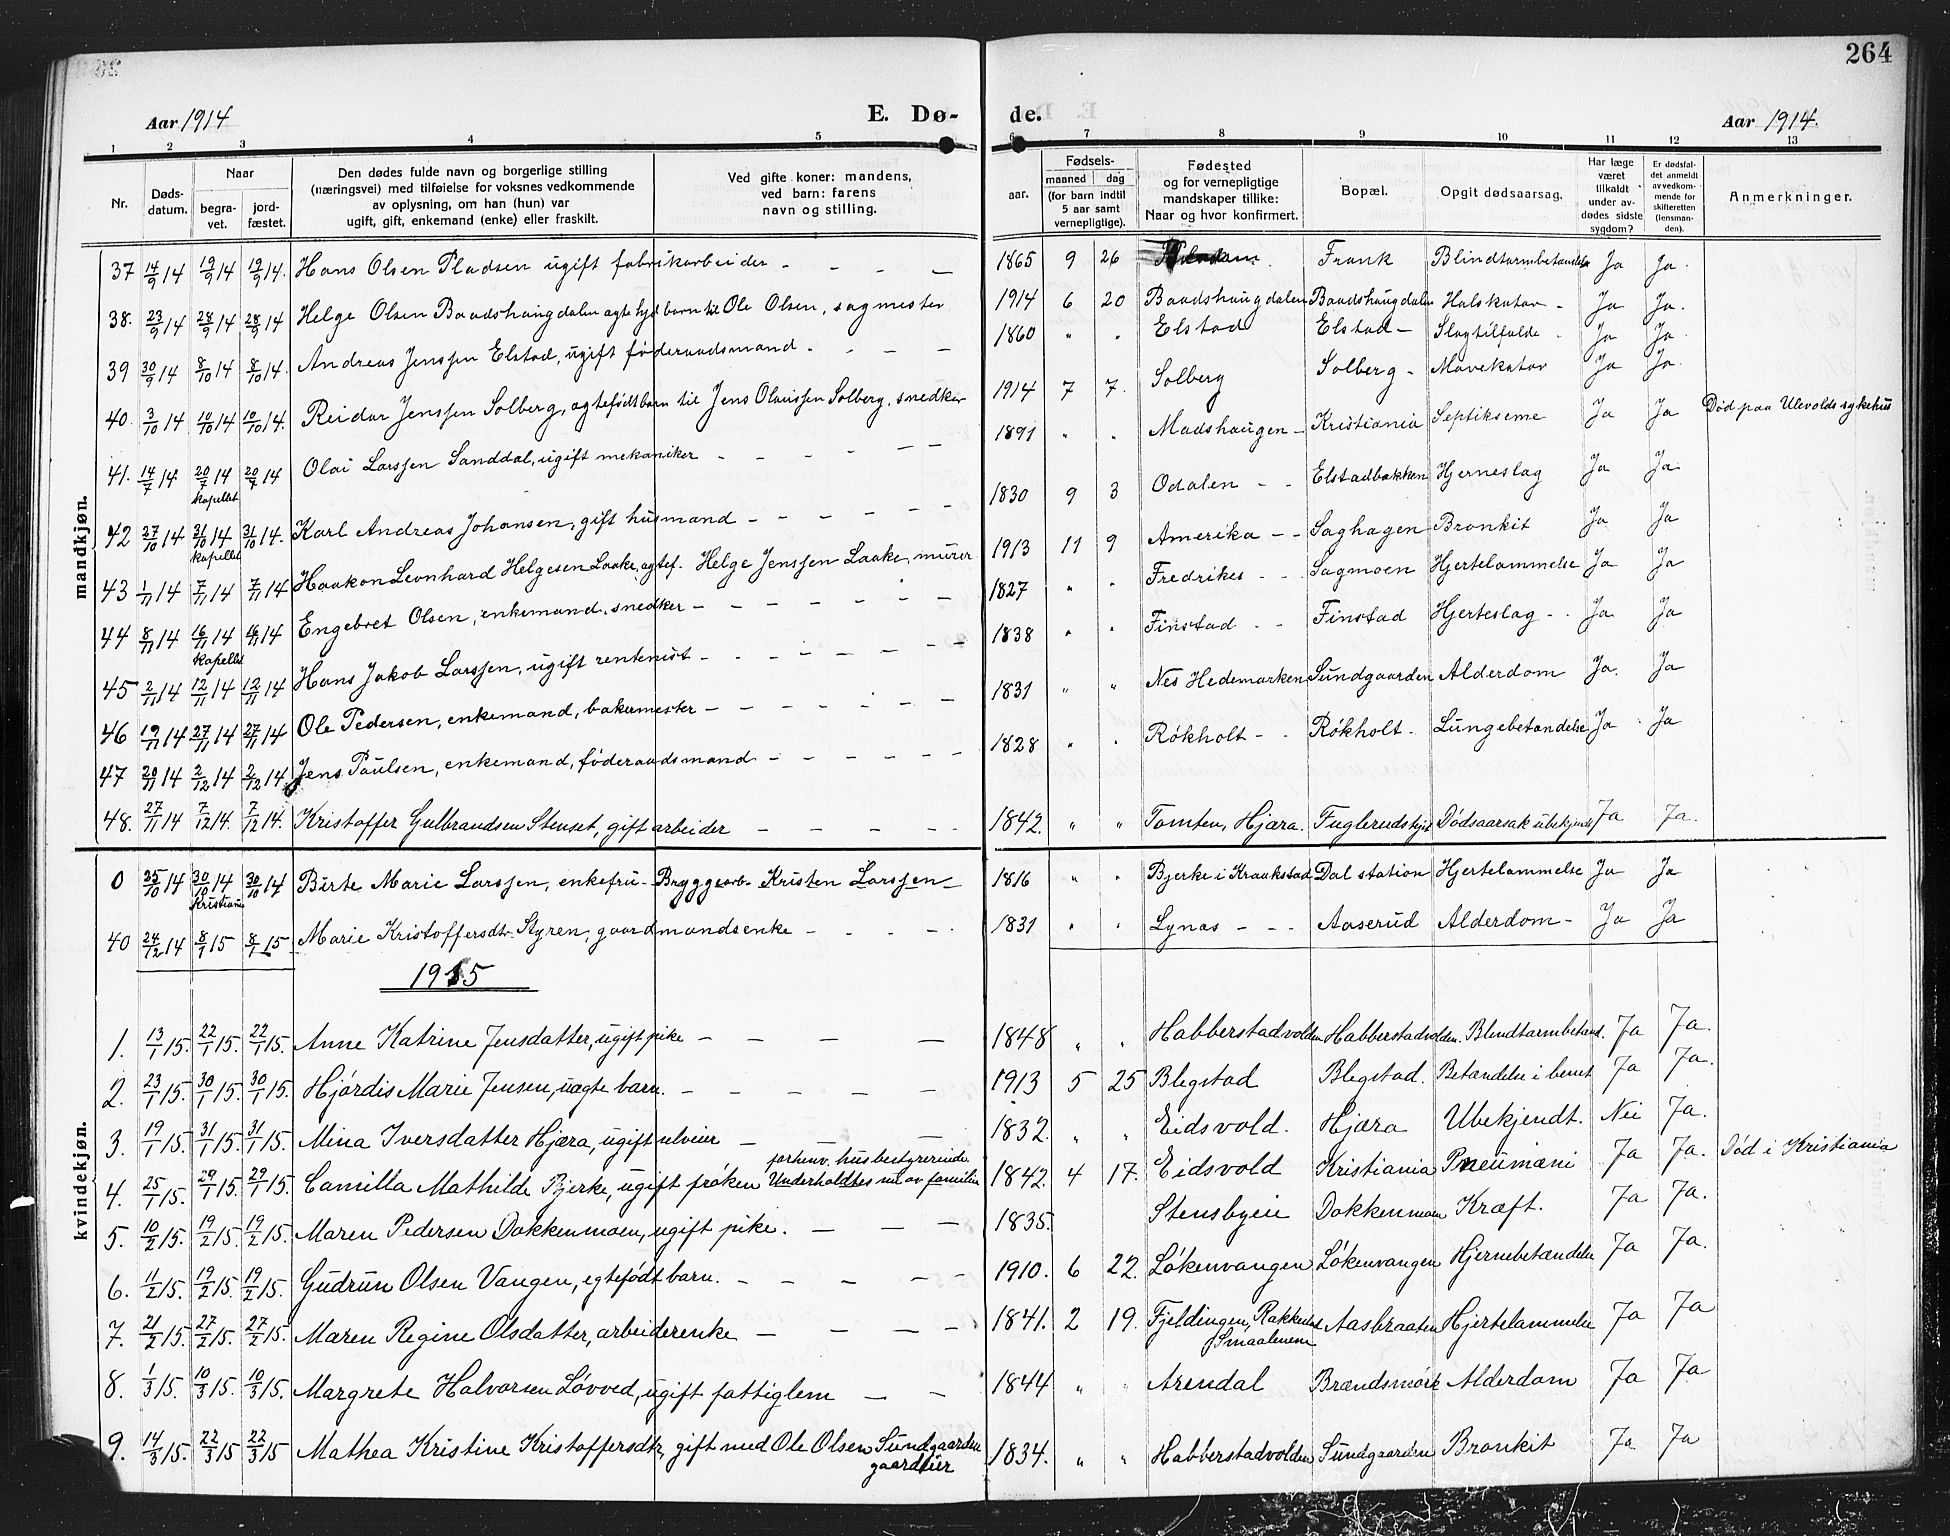 264
Aar 1914 E. Dø- de. Aar 1914.
1 2 3 4 5 6 7 8 9 10 11 12 13
Nr. Døds-datum. Naar begra-vet. jord-fæstet. Den dødes fulde navn og borgerlige stilling (næringsvei) med tilføielse for voksnes vedkommende av oplysning, om han (hun) var ugift, gift, enkemand (enke) eller fraskilt. Ved gifte koner: mandens, ved barn: farens navn og stilling. Fødsels- aar. maaned dag (for barn indtil 5 aar samt vernepligtige). Fødested og for vernepligtige mandskaper tillike: Naar og hvor konfirmert. Bopæl. Opgit dødsaarsag. Har læge været tilkaldt under av-dødes sidste sygdom? Er dødsfal-det anmeldt av vedkom-mende for skifteretten (lensman-den). Anmerkninger.
mandkjøn.
37 14/9 14 19/9 14 19/9 14. Hans Olsen Pladsen ugift fabrikarbeider - - - - 1865 9 26 Frank Blindtarmbetændelse Ja Ja.
38. 23/9 14 28/9 14 28/9 14 Helge Olsen Baadshaugdalen agtefød barn til Ole Olsen, sagmester 1914 6 20 Baadshaugdalen Baadshaugdalen Halskatar - Ja Ja.
39 30/9 14 8/10 14 8/10 14. Andreas Jenssen Elstad, ugift føderaadsmand - - - - 1860 " " Elstad Elstad - Slagtilfælde - Ja Ja.
40. 3/10 14 10/10 14 10/10 14. Reidar Jenssen Solberg, agtefødt barn til Jens Olaussen Solberg, snedker 1914 7 7. Solberg Solberg - Mavekatar Ja Ja.
41. 14/7 14 20/7 14 kapellet 20/7 14 Olai Larssen Sanddal, ugift mekaniker - - - - - 1891 " " Madshaugen - Kristiania Septikseme Ja Ja Død paa Ulevolds sykehus
42 27/10 14 31/10 14 kapellet 31/10 14. Karl Andreas Johansen, gift husmand - - - - - 1830 9 3 Odalen - - Elstadbakken Hjerneslag Ja Ja
43 1/11 14 7/11 14 7/11 14 Haakon Leonhard Helgesen Laake, agtef. Helge Jenssen Laake, murer 1913 11 9 Amerika - - Saghagen Bronkit Ja Ja
44 8/11 14 16/11 14 kapellet 16/11 14 Engebret Olsen, enkemand, snedker - - - - - - 1827 " " Fredrikes - - Sagmoen Hjertelammelse Ja Ja
45 2/11 14 12/11 14 12/11 14 Hans Jakob Larssen, ugift rentenist - - - - - - - 1838 " " Finstad - - Finstad Hjerteslag - Ja Ja
46 19/11 14 27/11 14 27/11 14 Ole Pedersen, enkemand, bakermester - - - - - - 1831 " " Nes Hedemarken Sundgaarden Alderdom Ja. Ja
47 20/11 14 2/12 14 2/12 14 Jens Paulsen, enkemand, føderaadsmand - - - - - - 1828 " " Røkholt - - Røkholt - Lungebetændelse Ja Ja
48. 27/11 14 7/12 14. 7/12 14. Kristoffer Gulbrandsen Stenset, gift arbeider - - - - - 1842. " " Tomten, Hjæra. Fuglerudskjst Dødsaarsak ubekjendt Ja Ja.
kvindekjøn.
0 25/10 14 30/10 14 Kristiania 30/10 14 Birte Marie Larssen, enkefru - Bryggearb. Kristen Larssen 1816 " " Bjerke i Kraakstad Dal station Hjertelammelse Ja Ja
40 24/12 14 8/1 15 8/1 15 Marie Kristoffersdtr. Styren, gaardmandsenke - - - - 1831 " " Lynas - - - Aaserud Alderdom - Ja Ja
1915
1. 13/1 15. 22/1 15. 22/1 15. Anne Katrine Jensdatter, ugift pike - - - - 1848 " " Habberstadvolden Habberstadvolden. Blindtarmbetænd. Ja Ja.
2. 23/1 15. 30/1 15. 30/1 15. Hjørdis Marie Jensen, uægte barn. - - - - 1913 5 25 Blegstad Blegstad. Betændelse i benet Ja Ja.
3. 19/1 15. 31/1 15. 31/1 15. Mina Iversdatter Hjæra, ugift selveier - - - 1832. " " Eidsvold. Hjæra Ubekjendt. Nei Ja.
4. 25/1 15. 29/1 15. 29/1 15. Camilla Mathilde Bjerke, ugift frøken forhenv. husbestyrerinde Underholdtes nu av familien 1842. 4 17. Eidsvold Kristiania Pneumoni Ja Ja. Død i Kristiania
5. 10/2 15. 19/2 15. 19/2 15. Maren Pedersen Dokkenmoen, ugift pike. - - - 1835. Stensbyeie Dokkenmoen Kræft. Ja Ja.
6. 11/2 15. 19/2 15. 19/2 15. Gudrun Olsen Vangen, egtefødt barn. - - - - - 1910. 6 22. Løkenvangen Løkenvangen Hjernebetændelse Ja Ja.
7. 21/2 15. 27/2 15. 27/2 15. Maren Regine Olsdatter, arbeiderenke - - - - 1841. 2 19. Fjeldingen, Rakkestad Smaalenene Aasbraaten Hjertelammelse Ja Ja
8. 1/3 15. 10/3 15. 10/3 15. Margrete Halvorsen Løvved, ugift fattiglem - - 1844 " " Arendal Brændsmørk Alderdom Ja Ja
9. 14/3 15. 22/3 15 22/3 15 Mathea Kristine Kristoffersdtr, gift med Ole Olsen Sundgaarden gaardeier 1834. " " Habberstadvolden Sundgaarden Bronkit Ja Ja